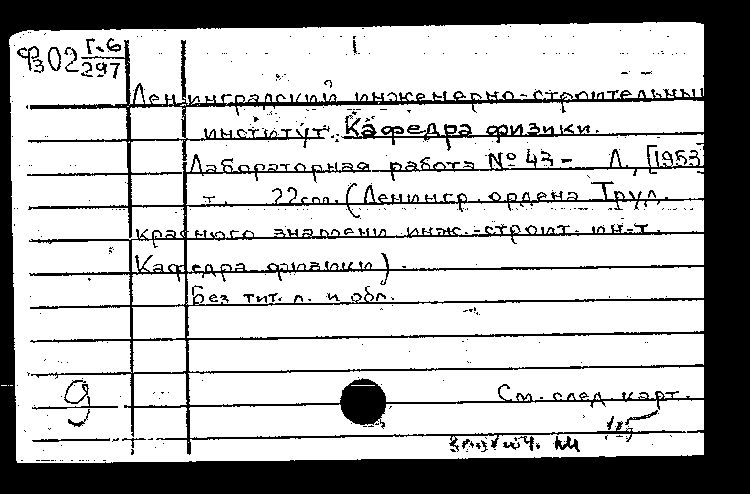 Фз02 Г.6/297
1
Ленинградский инженерно-строительны
институт. Кафедра физики.
Лабораторная работа № 43 - Л., [1953]
т. 22 см. (Ленингр. ордена Труд.
красного знамени инж.-строит. ин-т.
Кафедра физики).
Без тит. л. и обл.
9
См. след. карт.